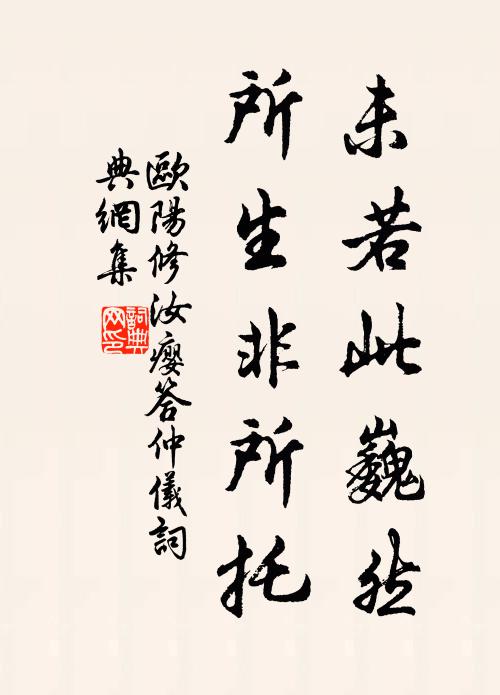 未若此巍然
所生非所托
歐陽修汝癭答仲儀詞
典網集
詞典网印